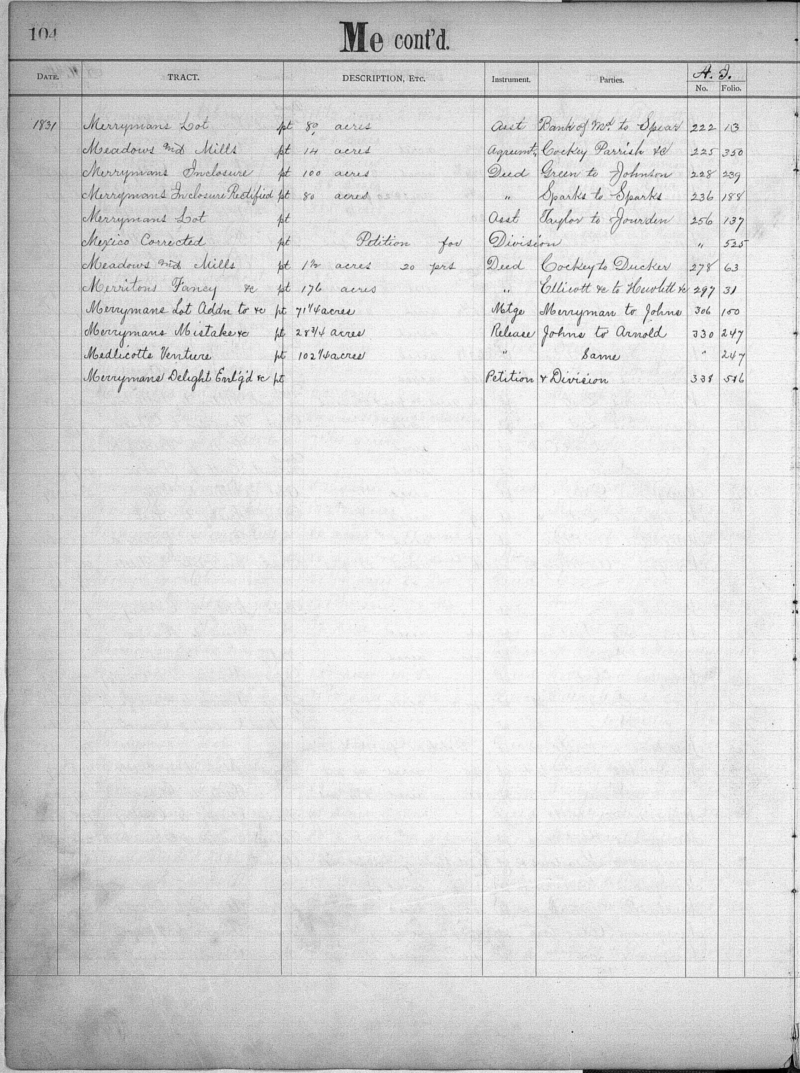 104
Me cont'd.
DATE. TRACT. DESCRIPTION, ETC. Instrument. Parties. No. Folio.
1831 Merrymans Lot pt 80 acres Asst Bank of Md to Spear 222 13
Meadows and Mills pt 14 acres Agreemt Cockey Parrish &c 225 350
Merrymans Inclosure pt 100 acres Deed Green to Johnson 228 239
Merrymans Inclosure Rectified pt 80 acres " Sparks to Sparks 236 188
Merrymans Lot pt Asst Taylor to Jourden 256 137
Mexico Corrected pt Petition for Division " 525
Meadows and Mills pt acres 20 prs Deed Cockey to Ducker 278 63
Merritons Fancy &c pt 176 acres " Ellicott &c to Hewlitt &c 297 31
Merrymans Lot Addn to &c pt 71 1/4 acres Mtge Merryman to Johns 306 100
Merrymans Mistake &c pt 28 3/4 acres Release Johns to Arnold 330 247
Medlicotts Venture pt 102 1/4 acres " Same " 247
Merrymans Delight Enl'g'd &c pt Petition & Division 338 516